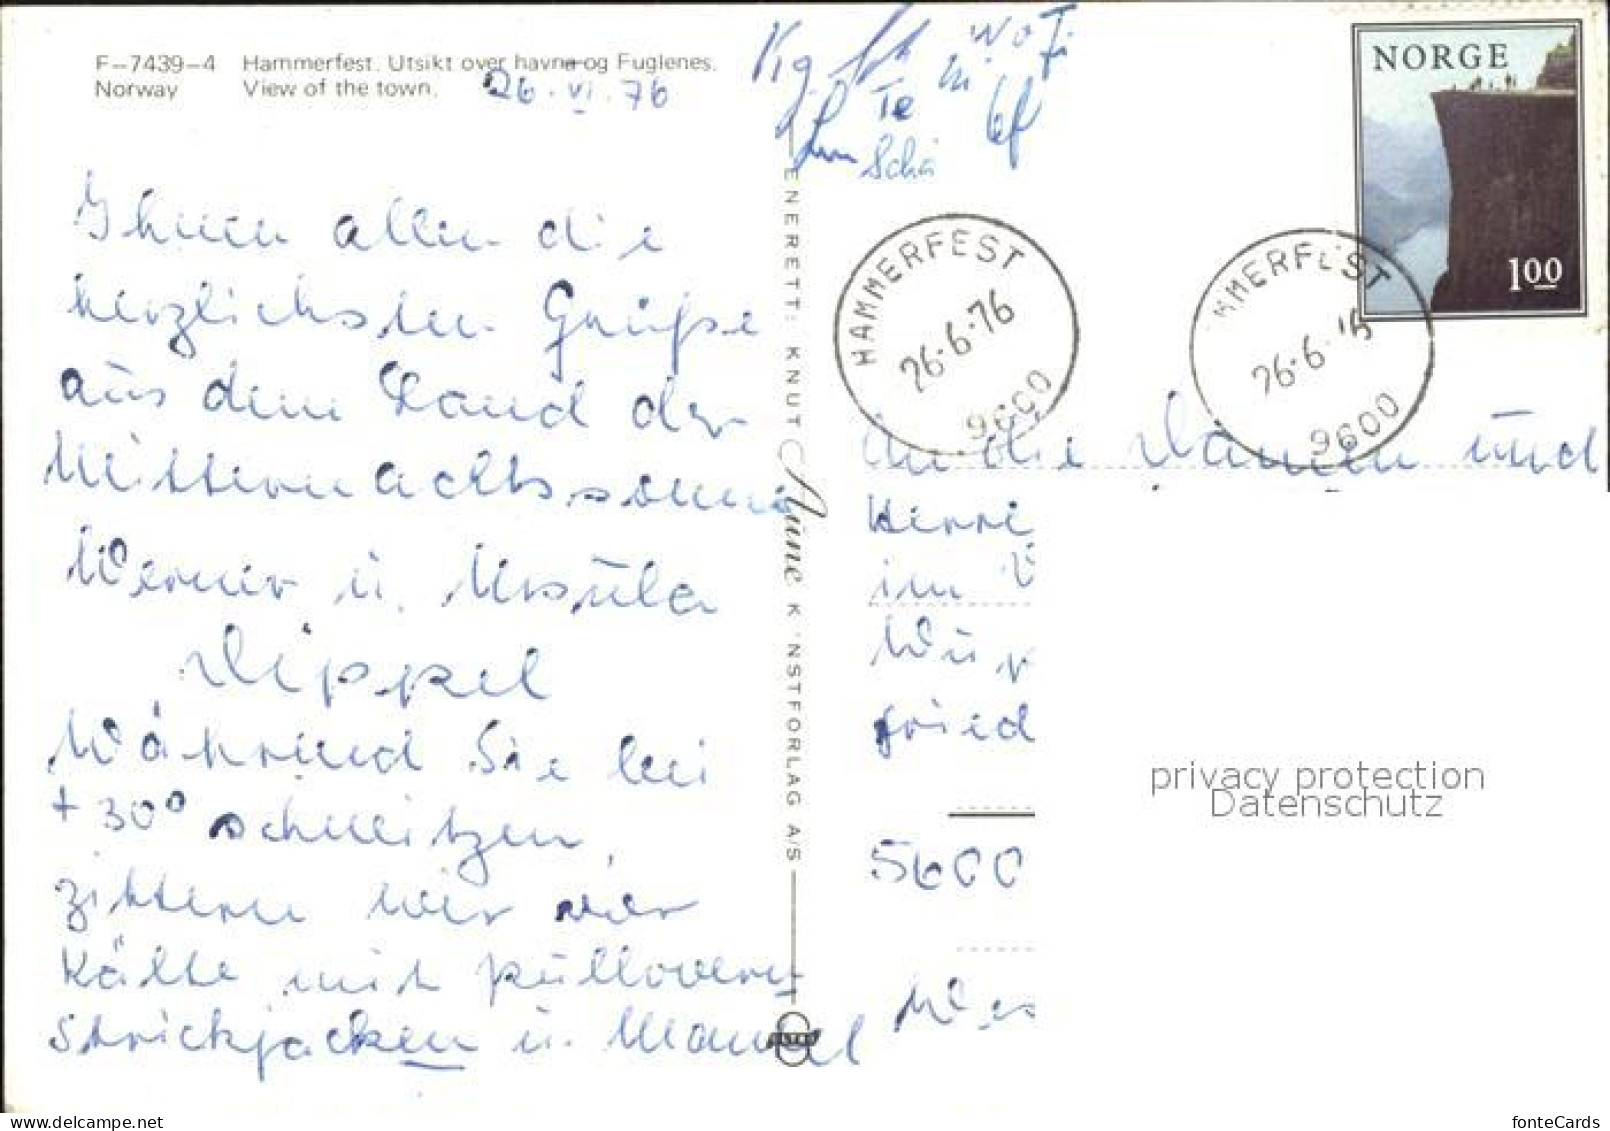 F–7439–4 Hammerfest. Utsikt over havna og Fuglenes.
Norway View of the town.
26. VI. 76
Ihnen allen die
herzlichsten Grüße
aus dem Land der
Mitternachtssonne
Werner u. Ursula
Dippel
Während Sie bei
+ 30° schwitzen,
zittern wir vor
Kälte mit Pullovern,
Strickjacken u. Mantel
ENERETT: KNUT Aune KUNSTFORLAG A/S
Te
Schä
NORGE
1.00
HAMMERFEST
26.6.76
9600
MMERFEST
26.6.76
9600
An die Damen und
Herre
im
Wup
fried
5600
Wes
privacy protection
Datenschutz
fonteCards